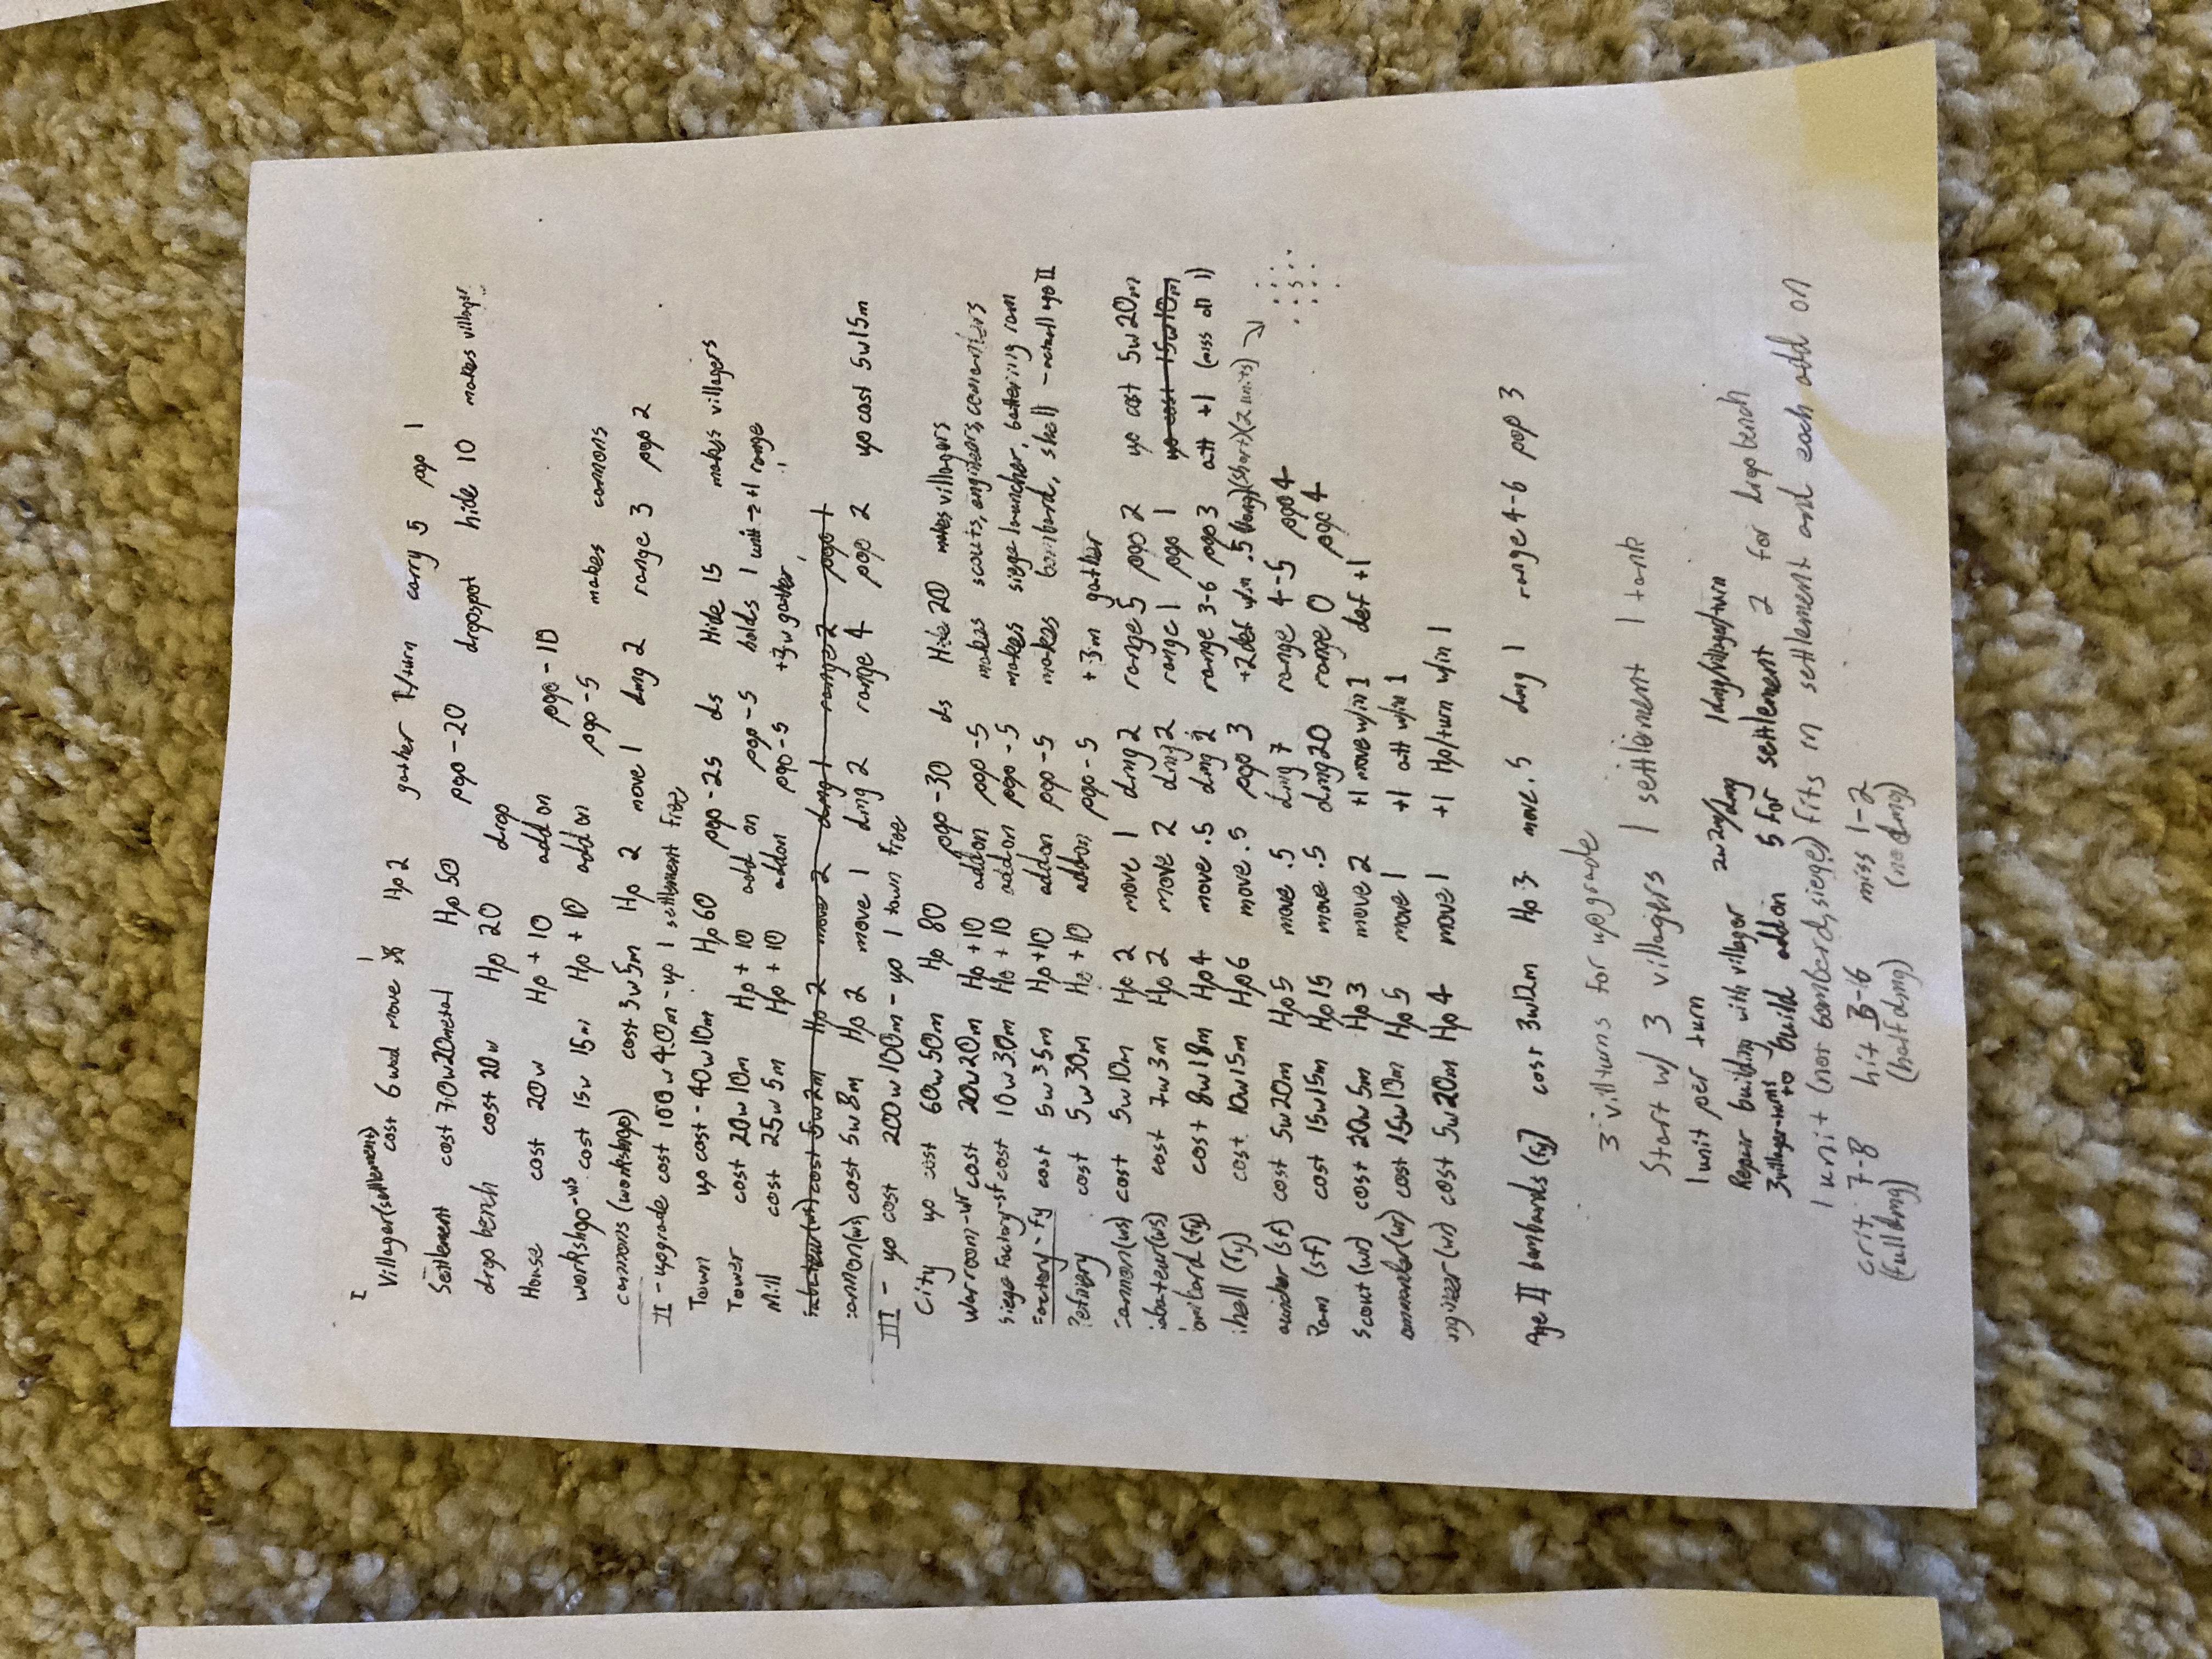 I
Villager(settlement) cost 6 wood move 1 Hp 2 gather 1/turn carry 5 pop 1
Settlement cost 70w20metal Hp 50 pop-20 dropspot hide 10 makes villager
drop bench cost 20w Hp 20 drop
House cost 20w Hp + 10 add on pop-10
workshop-ws cost 15w 15m Hp + 10 add on pop-5 makes cannons
cannons (workshop) cost 3w5m Hp 2 move 1 dmg 2 range 3 pop 2
II - upgrade cost 100w40m - up 1 settlement free
Town up cost - 40w10m Hp 60 pop-25 ds Hide 15 makes villagers
Tower cost 20w10m Hp + 10 add on pop-5 holds 1 unit → +1 range
Mill cost 25w5m Hp + 10 addon pop-5 +3w gather
sabateur(ws) cost 5w2m Hp 2 move 2 dmg 1 range 2 pop 1
cannon(ws) cost 5w8m Hp 2 move 1 dmg 2 range 4 pop 2 up cost 5w15m
III - up cost 200w100m - up 1 town free
City up cost 60w50m Hp 80 pop-30 ds Hide 20 makes villagers
Warroom-wr cost 20w20m Hp +10 addon pop-5 makes scouts, engineers,
siege factory-sf cost 10w30m Hp + 10 addon pop-5 makes siege launcher, battering ram
Factory-fy cost 5w35m Hp+10 addon pop-5 makes bombard, shell - age II
Refinery cost 5w30m Hp +10 addon pop-5 +3m gather
cannon(ws) cost 5w10m Hp 2 move 1 dmg2 range5 pop 2 up cost 5w20m
abateur(ws) cost 7w3m Hp 2 move 2 dmg2 range 1 pop 1 up cost 15w10m
ombard (fy) cost 8w18m Hp4 move .5 dmg 2 range 3-6 pop 3 att +1 (miss on 1)
shell (fy) cost 10w15m Hp6 move .5 pop 3 +2def w/in .5 (long)(short)(2 units)
s
auncher (sf) cost 5w20m Hp5 move .5 dmg 7 range 4-5 pop4
Ram (sf) cost 15w15m Hp15 move .5 dmg20 range 0 pop4
Scout (wr) cost 20w5m Hp3 move 2 +1 move w/in 1 def +1
ommander(wr) cost 15w10m Hp 5 move 1 +1 att w/in 1
ngineer (wr) cost 5w20m Hp 4 move 1 +1 Hp/turn w/in 1
Age II bombards (fy) cost 3w12m Hp 3 move .5 dmg 1 range 4-6 pop 3
3 villturns for upgrade
Start w/ 3 villagers 1 settlement 1 tank
1 unit per turn
Repair building with villager 2w2m/dmg 1dmg/villager/turn
3villager-turns to build addon 5 for settlement 2 for drop bench
1 unit (not bombard, siege) fits in settlement and each add on
crit 7-8 hit 3-6 miss 1-2
(full dmg) (half dmg) (no dmg)